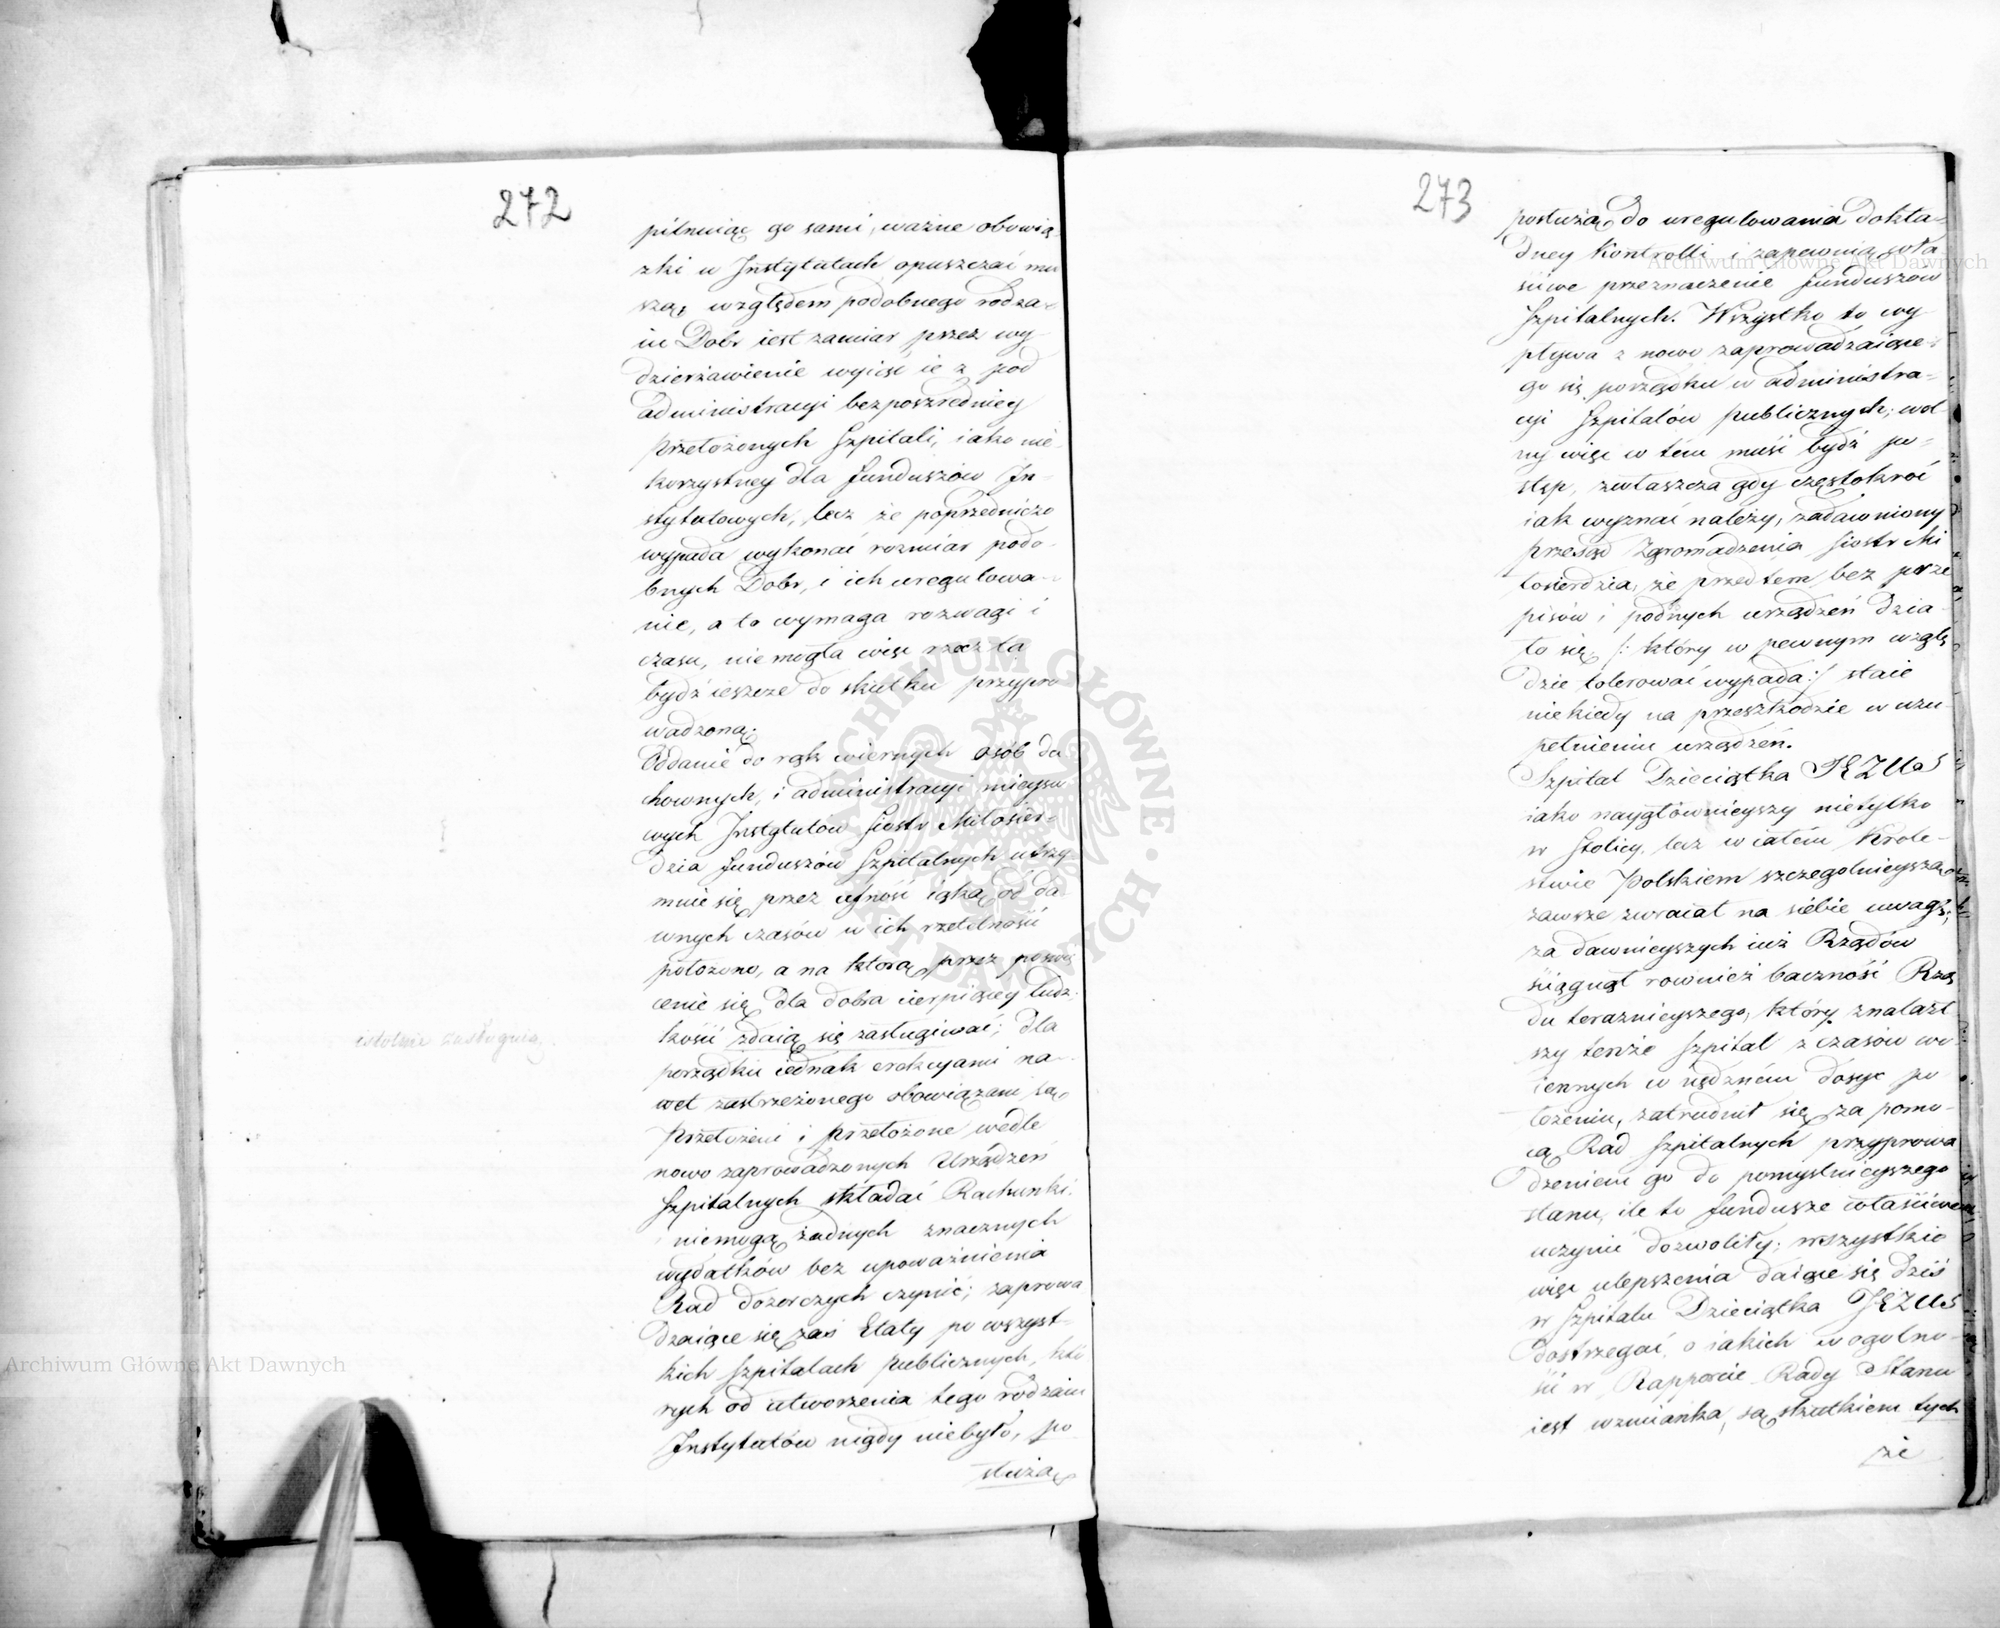 272
pilnuiąc go sami, ważne obowią-
zki w Instytutach opuszczać mu
szą, względem podobnego rodza-
iu Dobr iest zamiar przez wy-
dzierżawienie wyiść ie z pod
administracyi bezpośredniey
Przełożonych Szpitali, iako nie-
korzystney dla funduszów In-
stytutowych, lecz że poprzedniczo
wypada wykonać rozmiar podo-
bnych Dobr, i ich uregulowa-
nie, a to wymaga rozwagi i
czasu, nie mogła więc rzecz ta
bydź ieszcze do skutku przypro
wadzoną.
Oddanie do rąk wiernych osób du
chownych, i administracyi mieysco
wych Instytutów Siostr Miłosier-
dzia funduszów Szpitalnych utrzy
muie się przez ufność iaką od da
wnych czasów w ich rzetelności
położono, a na którą przez poświę
cenie się dla dobra cierpiącey ludz-
kości zdaią się zasługiwać; dla
istotnie zasługuią
porządku iednak erekcyami na-
wet zastrzeżonego obowiązani są
Przełożeni i Przełożone wedle
nowo zaprowadzonych Urządzeń
Szpitalnych składać Rachunki,
i niemogą żadnych znacznych
wydatków bez upoważnienia
Rad dozorczych czynić; zaprowa
dzaiące się zaś Etaty po wszyst-
kich Szpitalach publicznych, któ
rych od utworzenia tego rodzaiu
Instytutów nigdy niebyło, po
służą
273
posłużą do uregulowania dokła-
dney Kontrolli i zapewnią wła
ściwe przeznaczenie funduszów
Szpitalnych. Wszystko to wy
pływa z nowo zaprowadzaiące-
go się porządku w administra-
cyi Szpitalów publicznych; wol-
ny więc w tém musi bydź po-
stęp, zwłaszcza gdy częstokroć
iak wyznać należy, zadawniony
przesąd Zgromadzenia Siostr Mi
łosierdzia, że przedtem bez prze
pisów i podnych urządzeń dzia-
ło się /: który w pewnym wzglę
dzie tolerować wypada :/ staie
niekiedy na przeszkodzie w uzu-
pełnieniu urządzeń.
Szpital Dzieciątka JEZUS
iako naygłównieyszy nietylko
w Stolicy, lecz w całém Króle-
stwie Polskiem szczegolnieyszą
zawsze zwracał na siebie uwagę,
za dawnieyszych iuż Rządów
ściągnął rownież baczność Rzą
du teraznieyszego, który znalazł
szy tenże Szpital z czasów wo
iennych w nędznem dosyć po
łożeniu, zatrudnił się za pomo-
cą Rad Szpitalnych przyprowa
dzeniem go do pomyślnieyszego
stanu, ile to fundusze właściwe
uczynić dozwoliły; wszystkie
więc ulepszenia daiące się dziś
w Szpitalu Dzieciątka JEZUS
dostrzegać, o iakich w ogolno-
ści w Rapporcie Rady Stanu
iest wzmianka, są skutkiem tych
że
Archiwum Główne Akt Dawnych
Archiwum Główne Akt Dawnych
ARCHIWUM GŁÓWNE AKT DAWNYCH